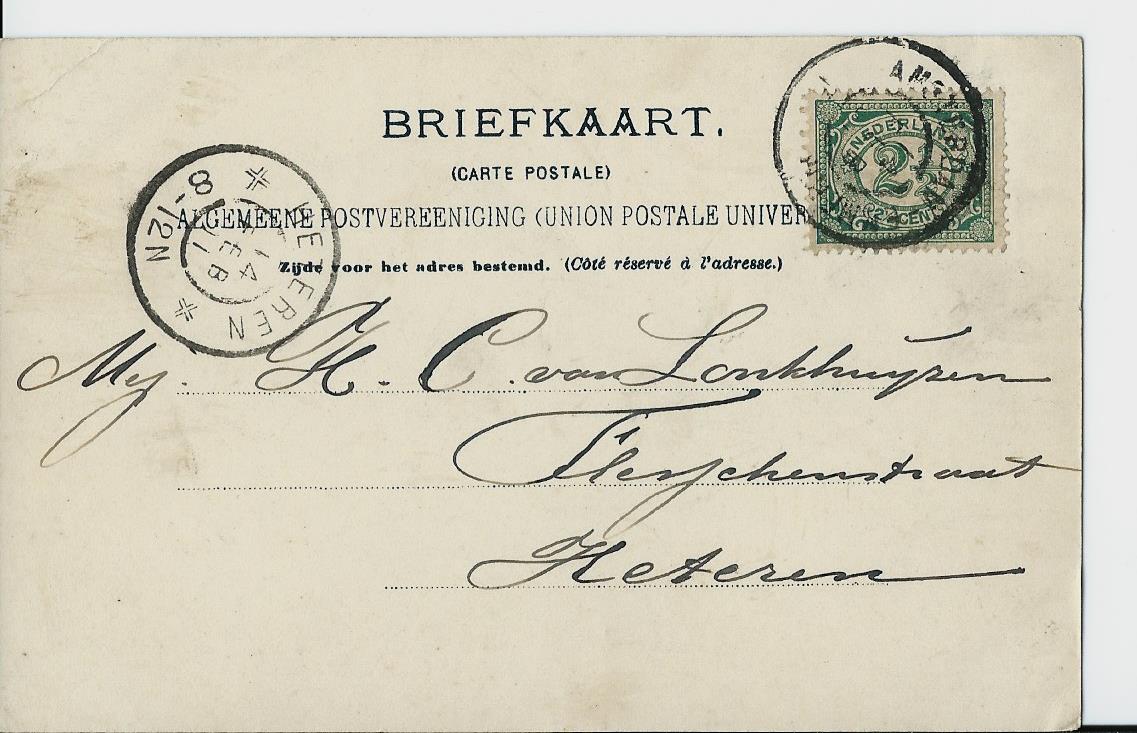 BRIEFKAART.
(CARTE POSTALE)
ALGEMEENE POSTVEREENIGING (UNION POSTALE UNIVER
Zijde voor het adres bestemd. (Côté réservé à l'adresse.)
NEDERLAND
2½
CENT
HETEREN
14 FEB
8-12N
Mej. H. C. van Lonkhuyzen
Heteren